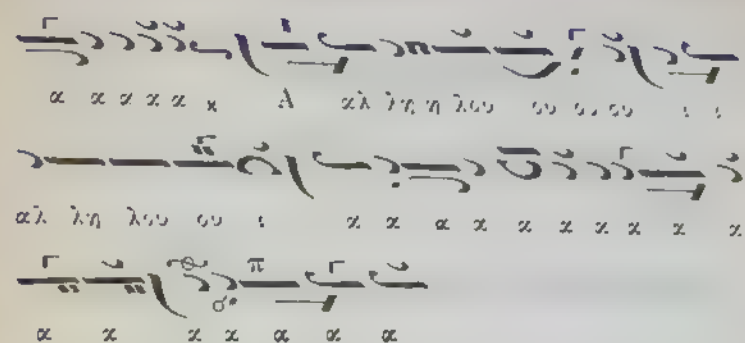 α α α α α α Α αλ λη η λου ου ου ου ι ι
αλ λη λου ου ι α α α α α α α α α α
α α α α α α α